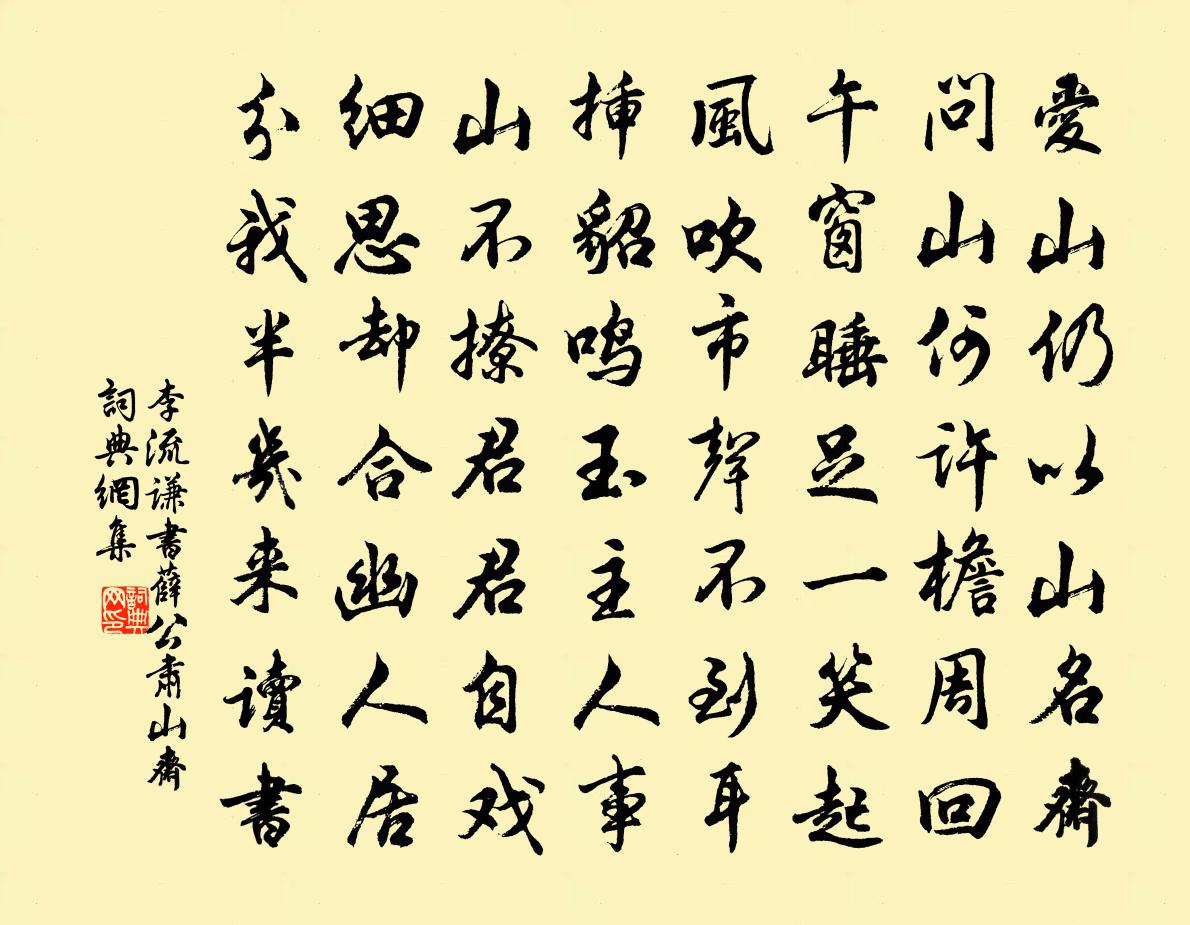 愛山仍以山名齋
問山何許檐周回
午窗睡足一笑起
風吹市聲不到耳
挿貂鳴玉主人事
山不撩君君自戏
细思却合幽人居
分我半幾来读書
李流谦書薛公肃山齋
詞典網集
詞典网印